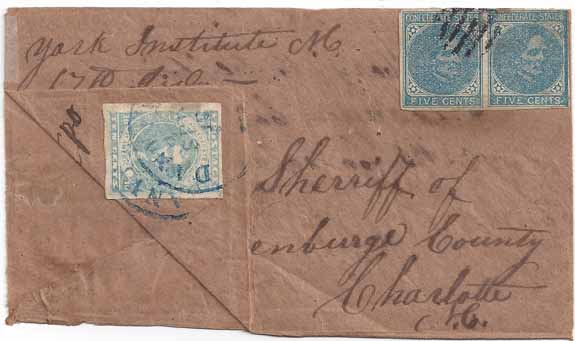 York Institute N.C.
CONFEDERATE STATES
FIVE CENTS
CONFEDERATE STATES
FIVE CENTS
po
D
Sherriff of
enburge County
Charlotte
N.C.